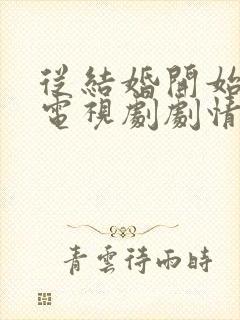 從結婚開始
電視劇劇情
青雲待雨時